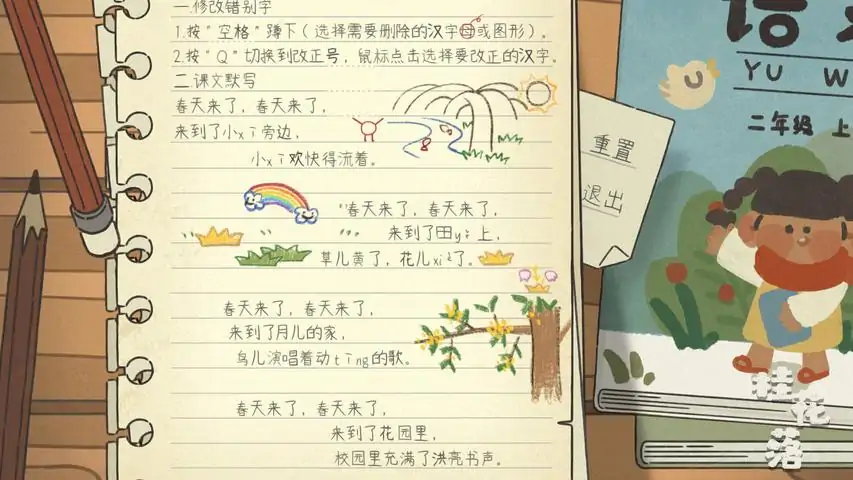 一.修改错别字
1.按"空格"蹲下(选择需要删除的汉字母或图形)。
2.按"Q"切换到改正号,鼠标点击选择要改正的汉字。
二.课文默写
春天来了,春天来了,
来到了小xī旁边,
小xī欢快得流着。
"春天来了,春天来了,
来到了田yě上,
草儿黄了,花儿xiè了。
春天来了,春天来了,
来到了月儿的家,
鸟儿演唱着动tīng的歌。
春天来了,春天来了,
来到了花园里,
校园里充满了洪亮书声。
重置
退出
YU W
二年级 上
U
桂花落